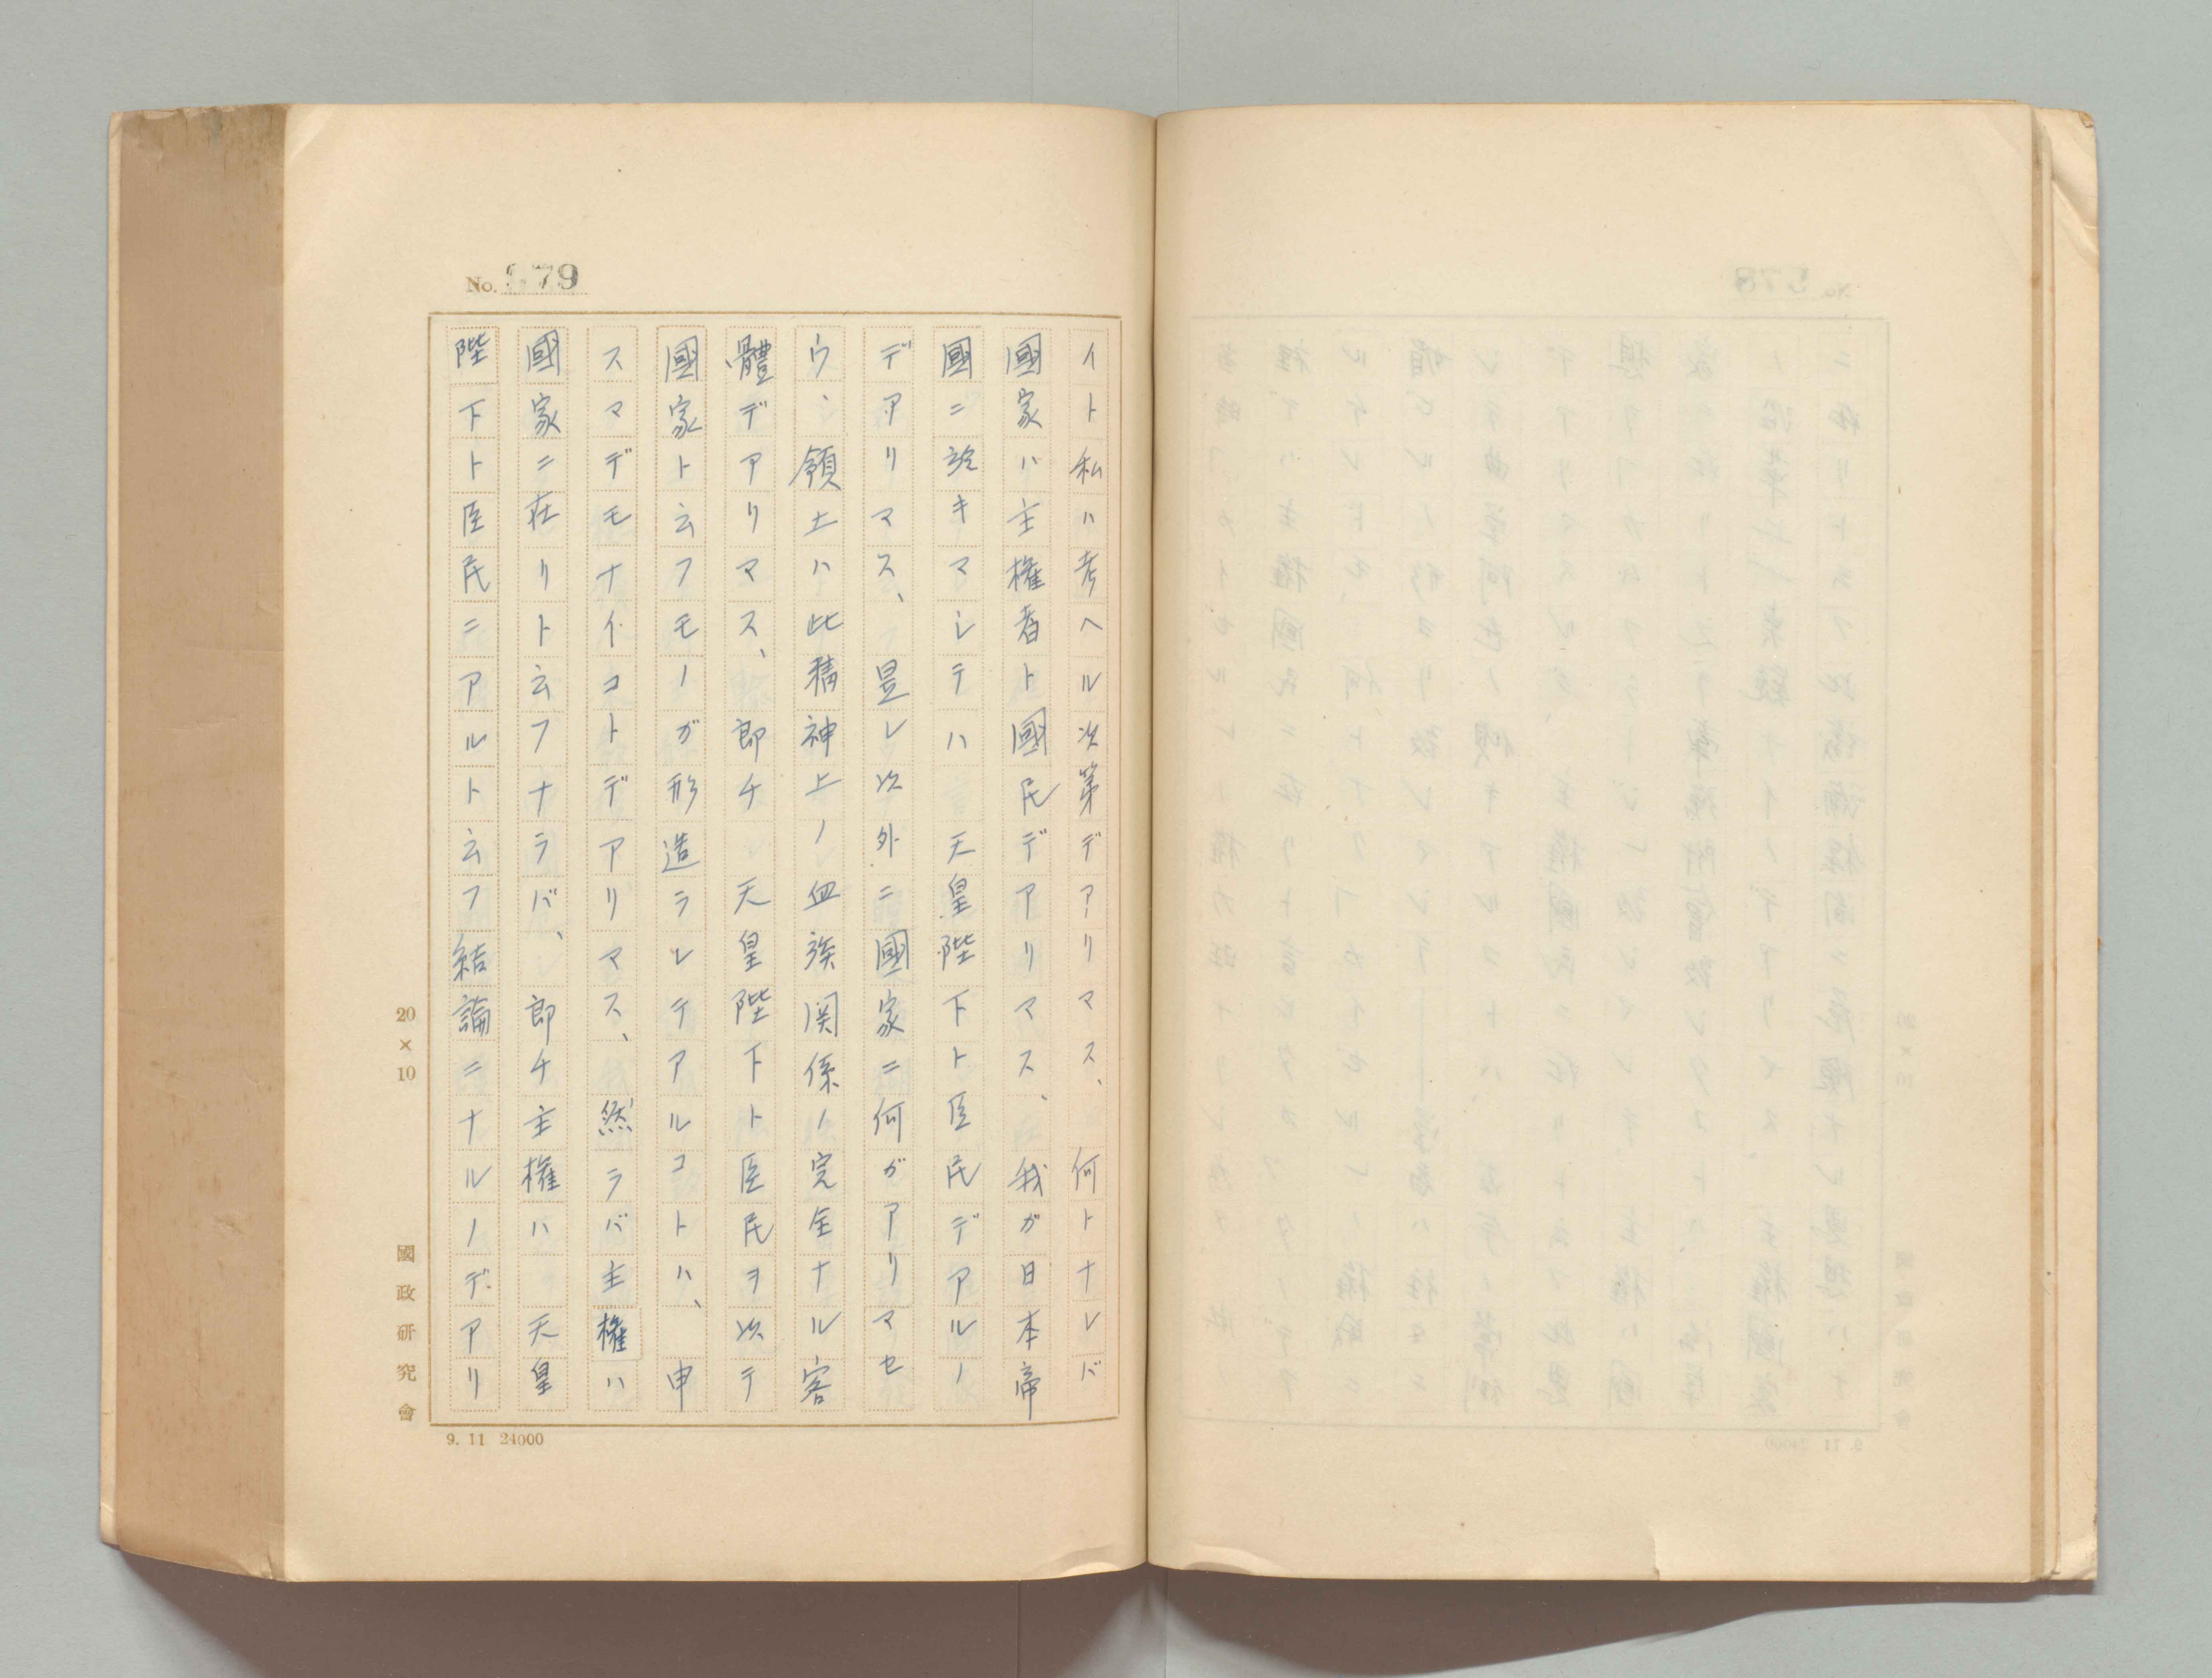 No. 379
イト私ハ考ヘル次第デアリマス、何トナレバ
國家ハ主権者ト國民デアリマス、我ガ日本帝
國ニ於キマシテハ 天皇陛下ト臣民デアルノ
デアリマス、是レ以外ニ國家ニ何ガアリマセ
ウ、領土ハ此精神上ノ血族関係ノ完全ナル客
體デアリマス、即チ 天皇陛下ト臣民ヲ以テ
國家ト云フモノガ形造ラレテアルコトハ、申
スマデモナイコトデアリマス、然ラバ主権ハ
國家ニ在リト云フナラバ、即チ主権ハ 天皇
陛下ト臣民ニアルト云フ結論ニナルノデアリ
20×10 國政研究會
9. 11 24000